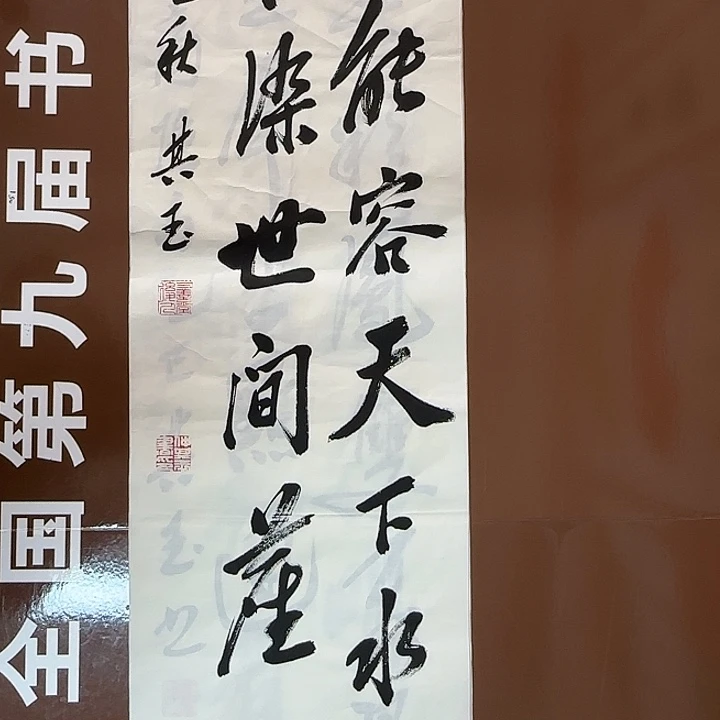 能容天下水
染世间塵
秋 其玉
全国第九届书